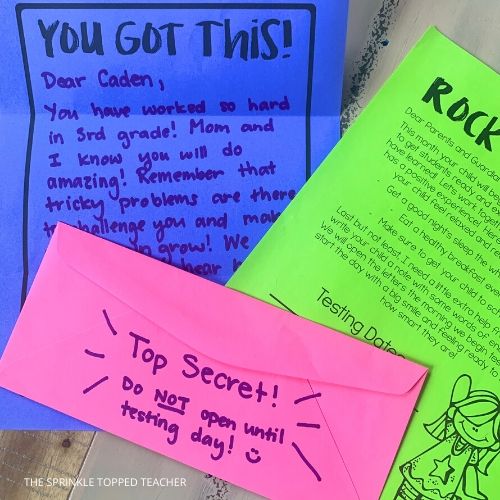 YOU GOT THiS!
Dear Caden,
You have worked so hard
in 3rd grade! Mom and
I know you will do
amazing! Remember that
tricky problems are there
to challenge you and
grow! We
hear
ROCK
Dear Parents and
This month your child will
to get students ready and
have learned! Let's work
has a positive experience!
your child feel relaxed and
Get a good night's sleep the
Eat a healthy breakfast
Make sure to get your child to
Last but not least, I need a little extra help
write your child a note with some words of
We will open the letters the morning we begin
start the day with a big smile and feeling ready to
how smart they are!
Testing Dates
Top Secret!
Do NOT open until
testing day!
THE SPRINKLE TOPPED TEACHER